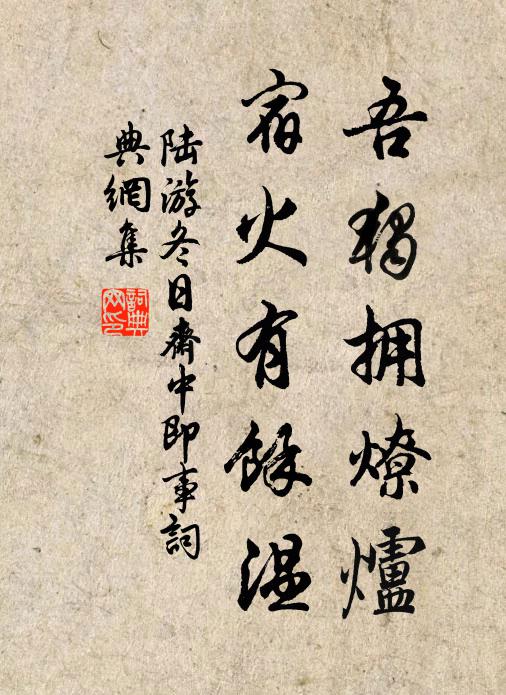 吾獨拥燎爐
宿火有餘温
陆游冬日齋中即事詞
典網集
詞典
网印